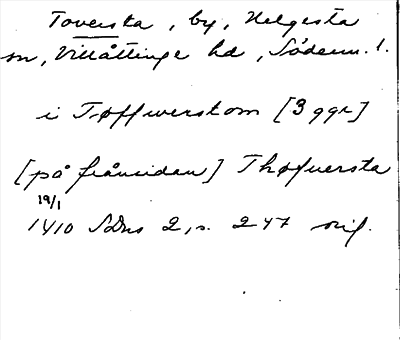 Toversta, by, Helgesta
sn, Villåttinge hd, Söderm. l.
i Tøffwerstom [3 ggr]
[på frånsidan] Thøfuersta
19/1
1410 SDns 2, s. 247 orig.